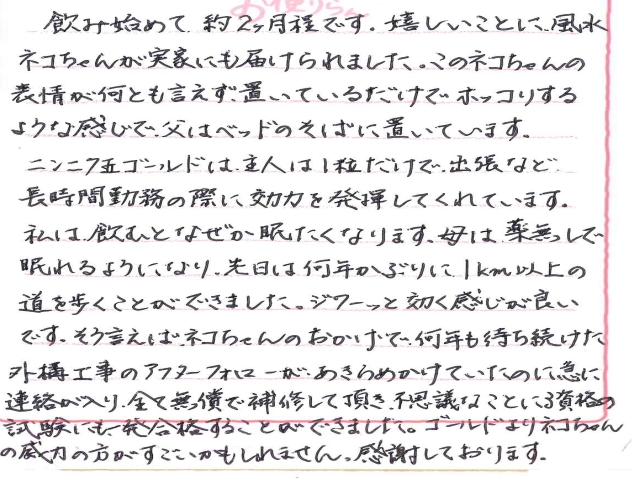 お便りから
飲み始めて、約2ヶ月程です。嬉しいことに、風水
ネコちゃんが実家にも届けられました。このネコちゃんの
表情が何とも言えず、置いているだけでホッコリする
ような感じで、父はベッドのそばに置いています。
ニンニク玉ゴールドは、主人は1粒だけで、出張など、
長時間勤務の際に効力を発揮してくれています。
私は、飲むとなぜか眠たくなります。母は、薬無しで
眠れるようになり、先日は何年かぶりに1km以上の
道を歩くことができました。ジワーッと効く感じが良い
です。そう言えば、ネコちゃんのおかげで、何年も待ち続けた
外構工事のアフターフォローが、あきらめかけていたのに急に
連絡が入り、全て無償で補修して頂き、不思議なことに、3資格の
試験にも一発合格することができました。ゴールドよりネコちゃん
の威力の方がすごいかもしれません。感謝しております。